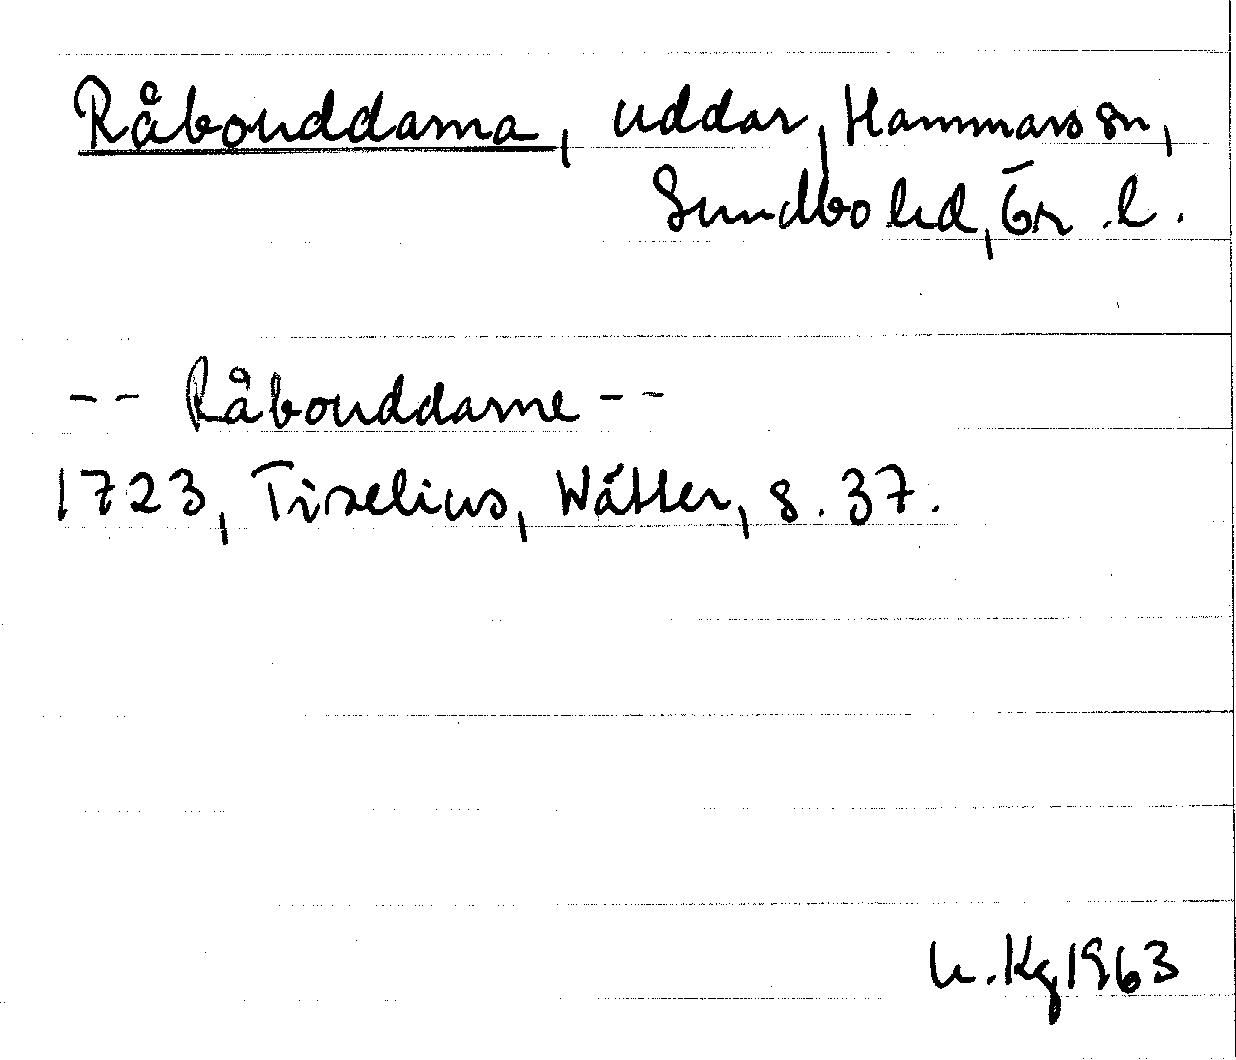 Råbouddarna, uddar, Hammars sn,
Sundbo hd, Ör. l.
-- Råbouddarne --
1723, Tiselius, Wätter, s. 37.
U. Kg 1963